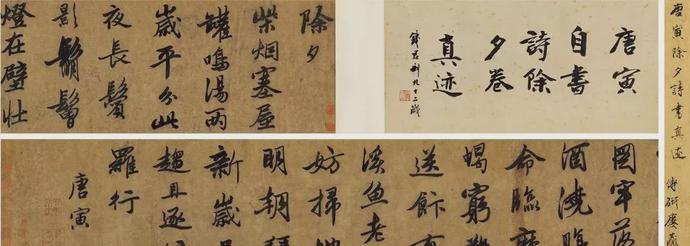 唐寅除夕詩書真迹
唐寅
自書
詩除
夕卷
真迹
除夕
柴烟塞屋
罐鳴湯兩
歲平分此
夜長鬢
影鬅鬙
燈在壁壯
牢落
酒澆臨
命臨磨
蝎窮難
送
溪魚老
妨掃地
明朝拜
新歲
趨且逐
羅行
唐寅